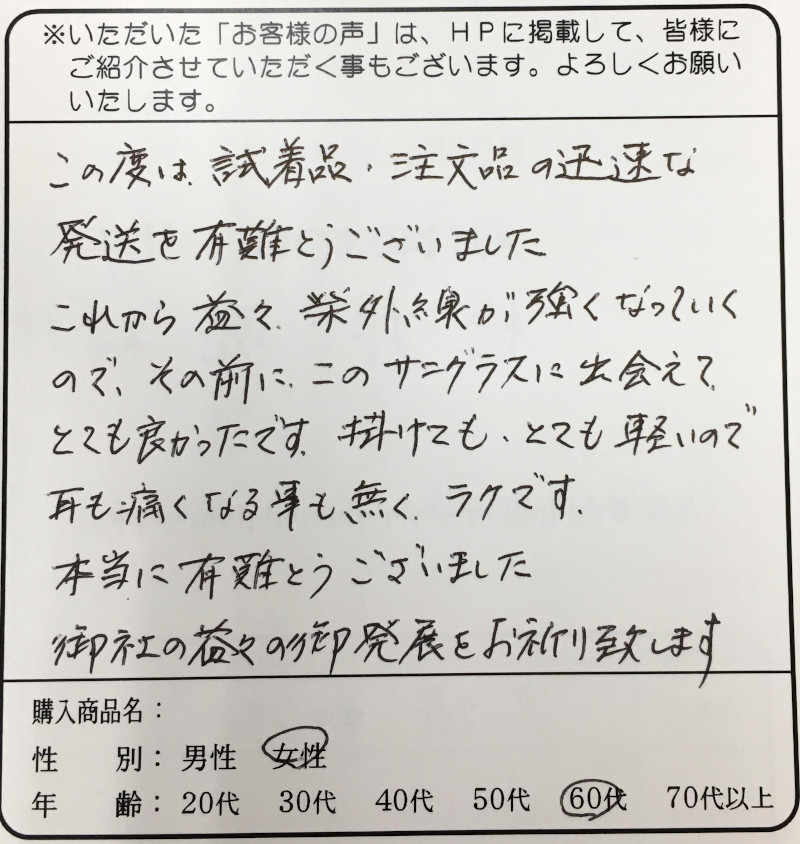 ※いただいた「お客様の声」は、HPに掲載して、皆様に
ご紹介させていただく事もございます。よろしくお願い
いたします。
この度は、試着品・注文品の迅速な
発送を有難とうございました
これから益々、紫外線が強くなっていく
ので、その前に、このサングラスに出会えて、
とても良かったです。掛けても、とても軽いので
耳も痛くなる事も無く、ラクです。
本当に有難とうございました
御社の益々の御発展をお祈り致します
購入商品名：
性　別：男性　女性
年　齢：20代　30代　40代　50代　60代　70代以上